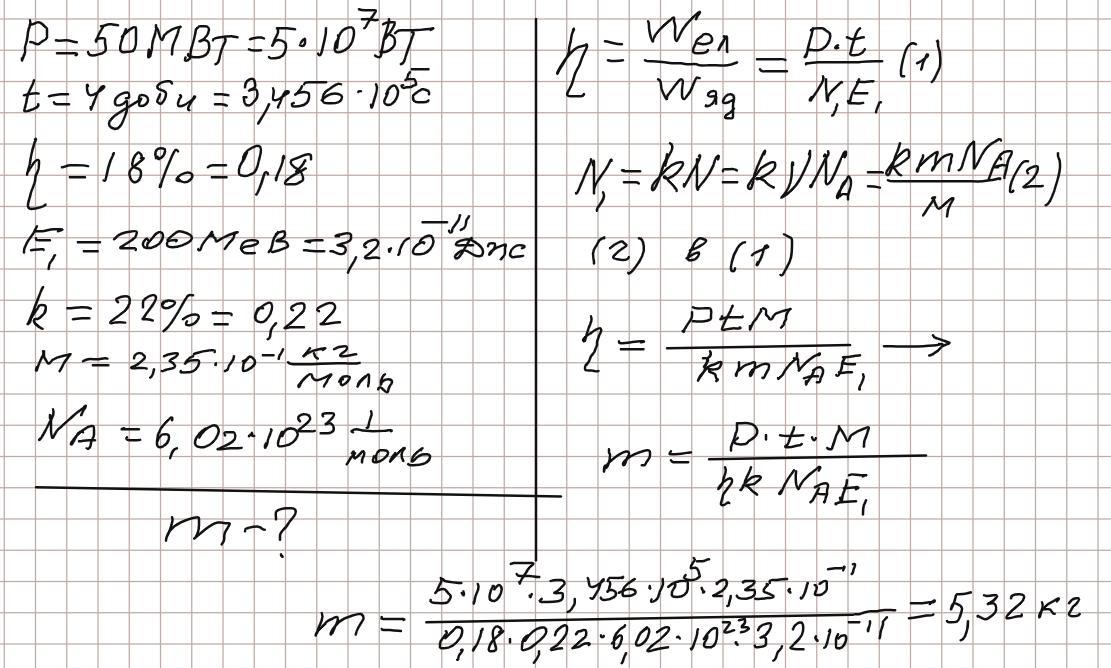 P = 50 МВт = 5·10⁷ Вт
t = 4 доби = 3,456·10⁵ с
η = 18% = 0,18
E₁ = 200 МеВ = 3,2·10⁻¹¹ Дж
k = 22% = 0,22
M = 2,35·10⁻¹ кг/моль
N_A = 6,02·10²³ 1/моль
m - ?
η = Wел/Wяд = P·t/N₁E₁ (1)
N₁ = kN = kνN_A = kmN_A/M (2)
(2) в (1)
η = PtM/kmN_AE₁ →
m = P·t·M/ηkN_AE₁
m = 5·10⁷·3,456·10⁵·2,35·10⁻¹/0,18·0,22·6,02·10²³·3,2·10⁻¹¹ = 5,32 кг